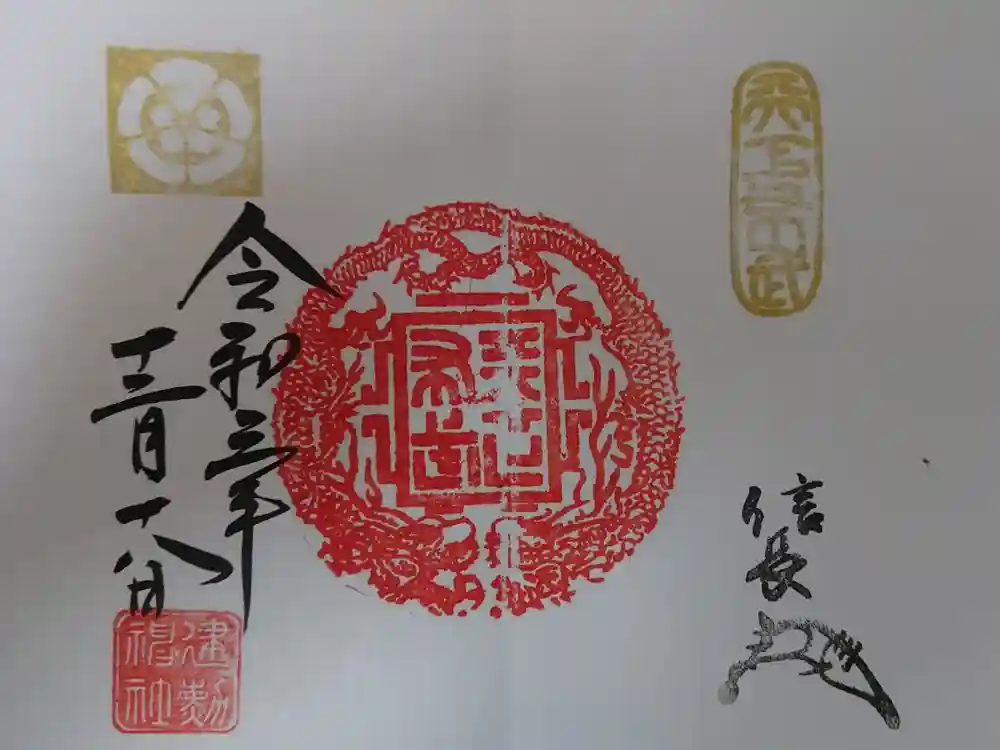 天下布武
信長
天下布武
令和三年
十二月十八日
建勲神社